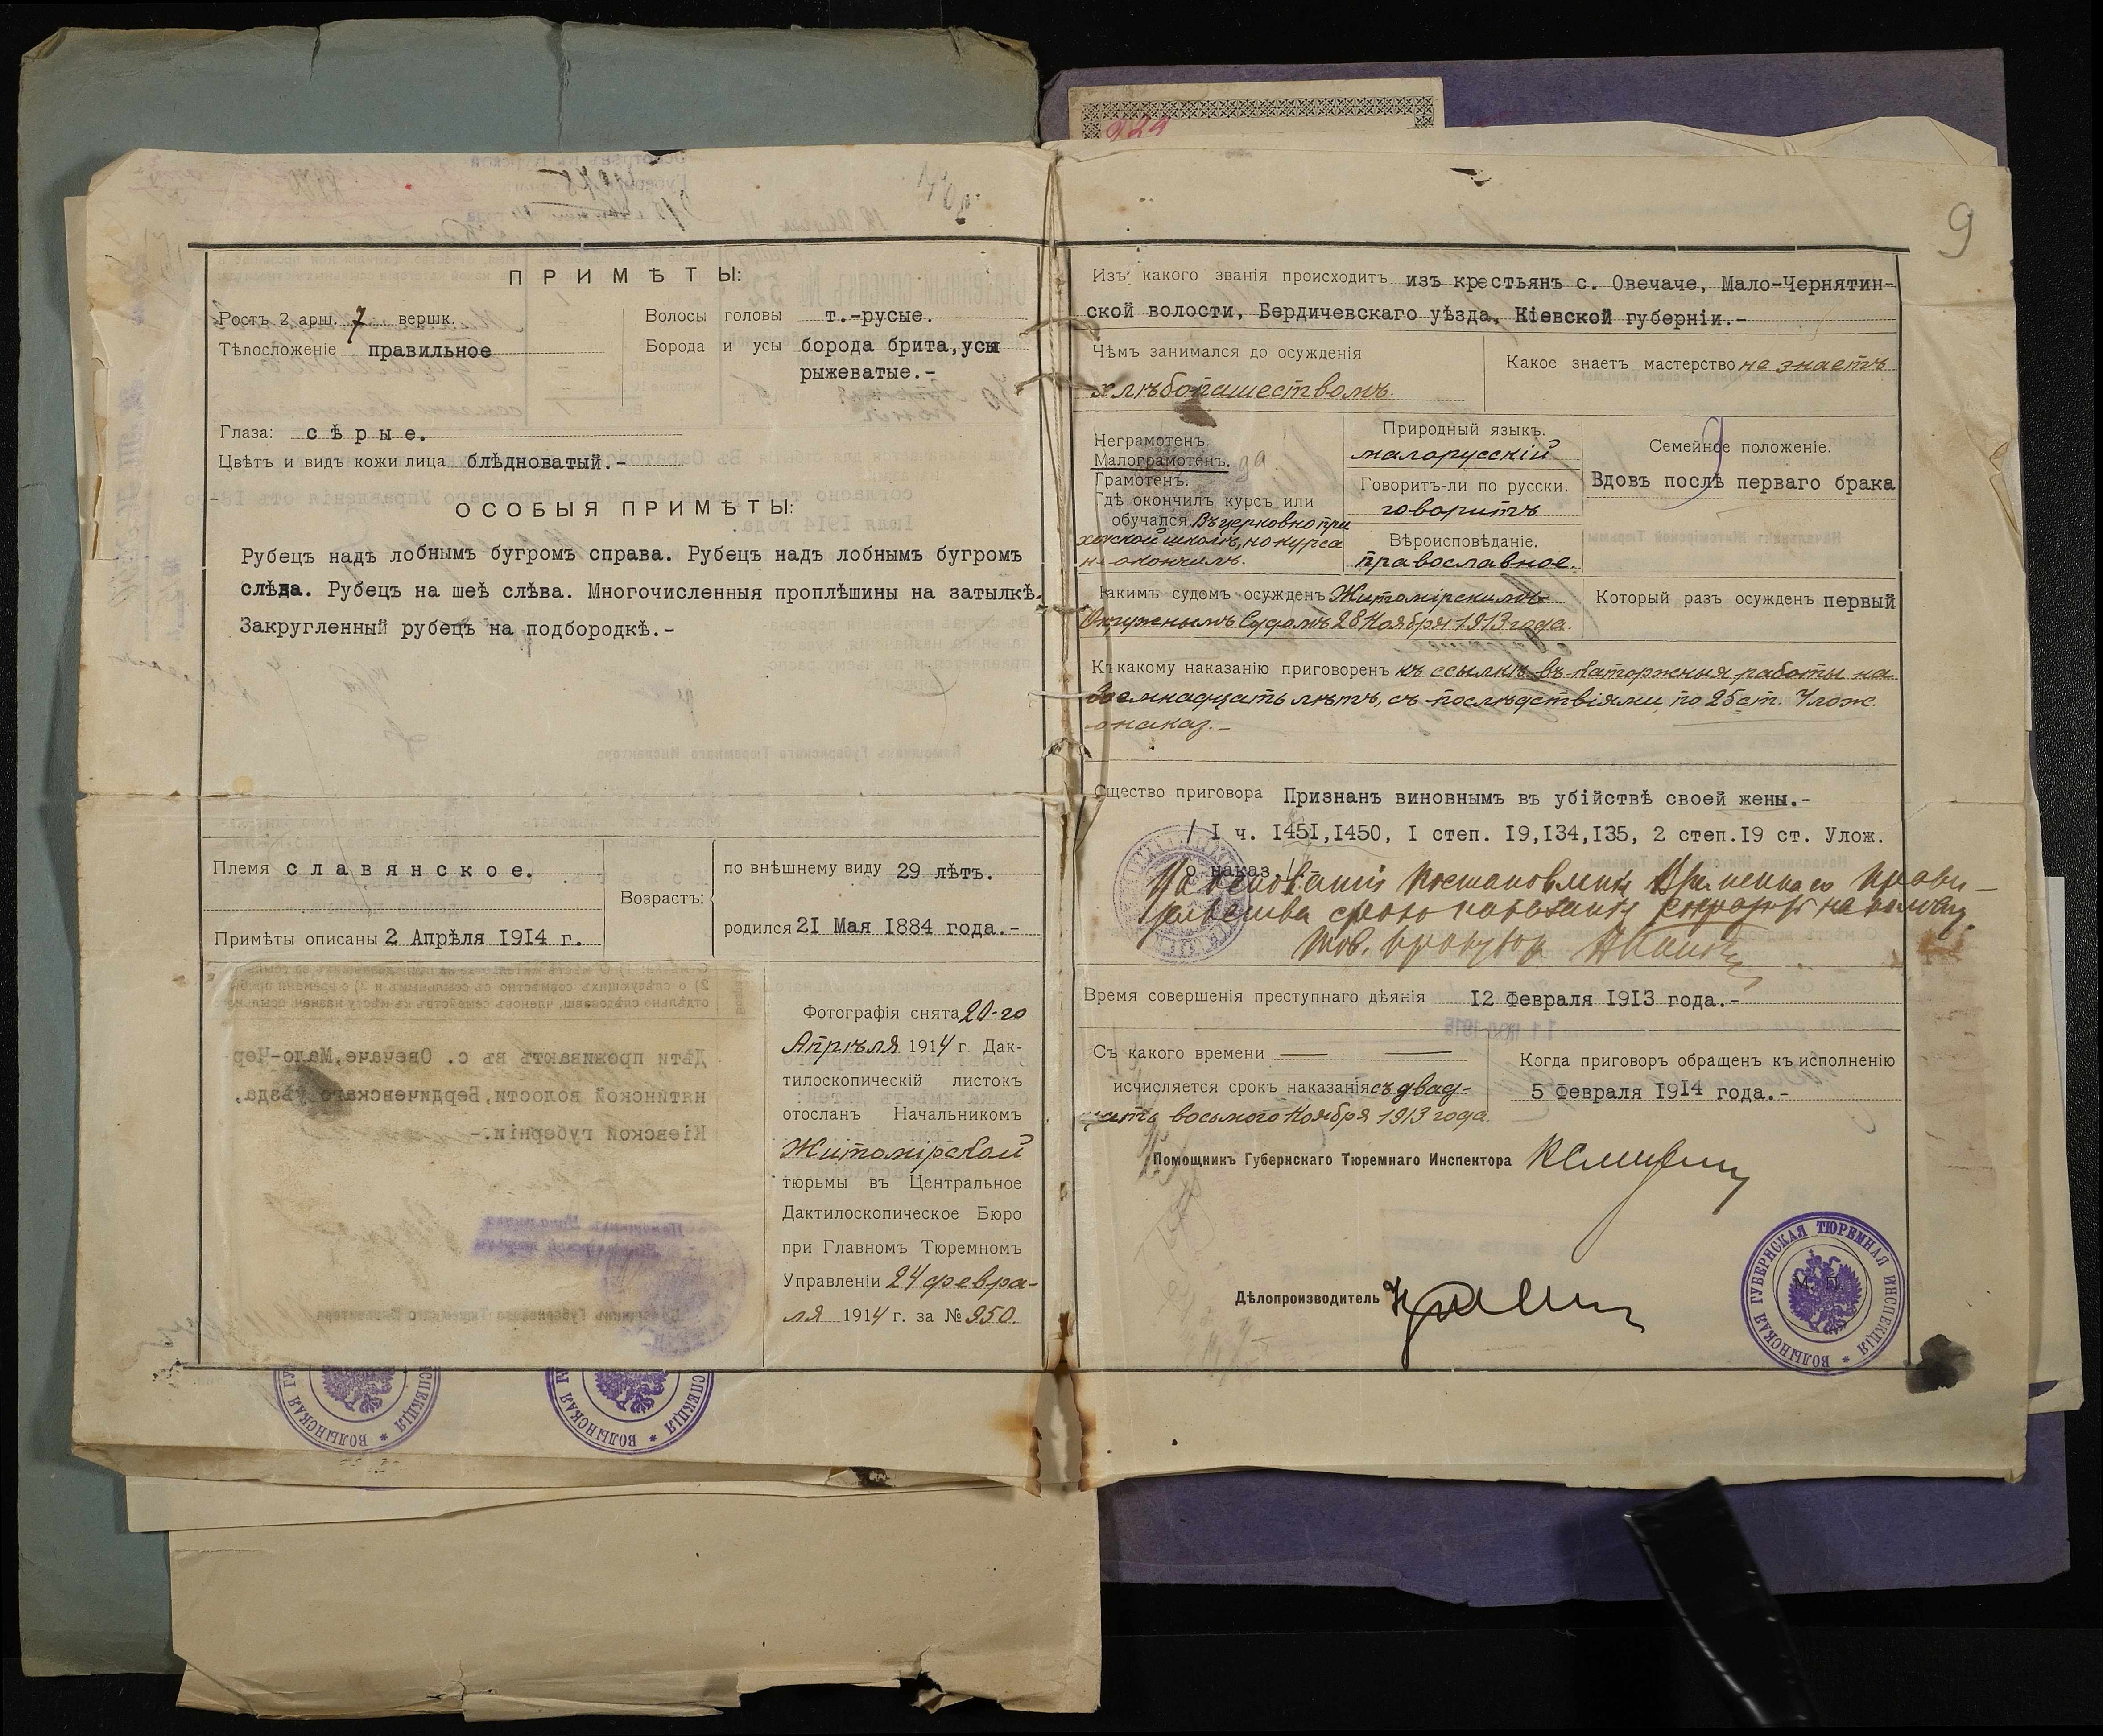 ПРИМѢТЫ:
Ростъ 2 арш. 7 вершк.
Тѣлосложеніе правильное
Волосы головы т.-русые.
Борода и усы борода брита,усы
рыжеватые.-
Глаза: сѣрые.
Цвѣтъ и видъ кожи лица блѣдноватый.-
ОСОБЫЯ ПРИМѢТЫ:
Рубецъ надъ лобнымъ бугромъ справа. Рубецъ надъ лобнымъ бугромъ
слѣва. Рубецъ на шеѣ слѣва. Многочисленныя проплѣшины на затылкѣ.
Закругленный рубецъ на подбородкѣ.-
Племя славянское.
Примѣты описаны 2 Апрѣля 1914 г.
Возрастъ:
по внѣшнему виду 29 лѣтъ.
родился 21 Мая 1884 года.-
Фотографія снята 20-го
Апрѣля 1914 г. Дак-
тилоскопическій листокъ
отосланъ Начальникомъ
Житомірской
тюрьмы въ Центральное
Дактилоскопическое Бюро
при Главномъ Тюремномъ
Управленіи 24 февра-
ля 1914 г. за № 950.
929
9
Изъ какого званія происходитъ изъ крестьянъ с. Овечаче, Мало-Чернятин-
ской волости, Бердичевскаго уѣзда, Кіевской губерніи.-
Чѣмъ занимался до осужденія
хлѣбопашествомъ.
Какое знаетъ мастерство не знаетъ
Неграмотенъ.
Малограмотенъ. да
Грамотенъ.
Гдѣ окончилъ курсъ или
обучался Въ церковно при
ходской школѣ, но курса
не окончилъ.
Природный языкъ.
малорусскій
Говоритъ-ли по русски.
говоритъ
Вѣроисповѣданіе.
православное.
Семейное положеніе.
Вдовъ послѣ перваго брака
Какимъ судомъ осужденъ Житомірскимъ
Окружнымъ Судомъ 28 Ноября 1913 года.
Который разъ осужденъ первый
Къ какому наказанію приговоренъ къ ссылкѣ въ каторжныя работы на
восемнадцать лѣтъ, съ послѣдствіями по 25 ст. Улож.
о наказ.-
Сщество приговора Признанъ виновнымъ въ убійствѣ своей жены.-
/ I ч. 1451,1450, I степ. 19,134,135, 2 степ.19 ст. Улож.
о наказ./
На основаніи Постановленія Временнаго Прави-
тельства срокъ наказанія сокращенъ на половину.
Тов. прокурора
Время совершенія преступнаго дѣянія 12 Февраля 1913 года.-
Съ какого времени
исчисляется срокъ наказанія съ двад-
цать восьмого Ноября 1913 года.
Когда приговоръ обращенъ къ исполненію
5 Февраля 1914 года.-
Помощникъ Губернскаго Тюремнаго Инспектора
Дѣлопроизводитель
М. П.
ВОЛЫНСКАЯ ГУБЕРНСКАЯ ТЮРЕМНАЯ ИНСПЕКЦІЯ